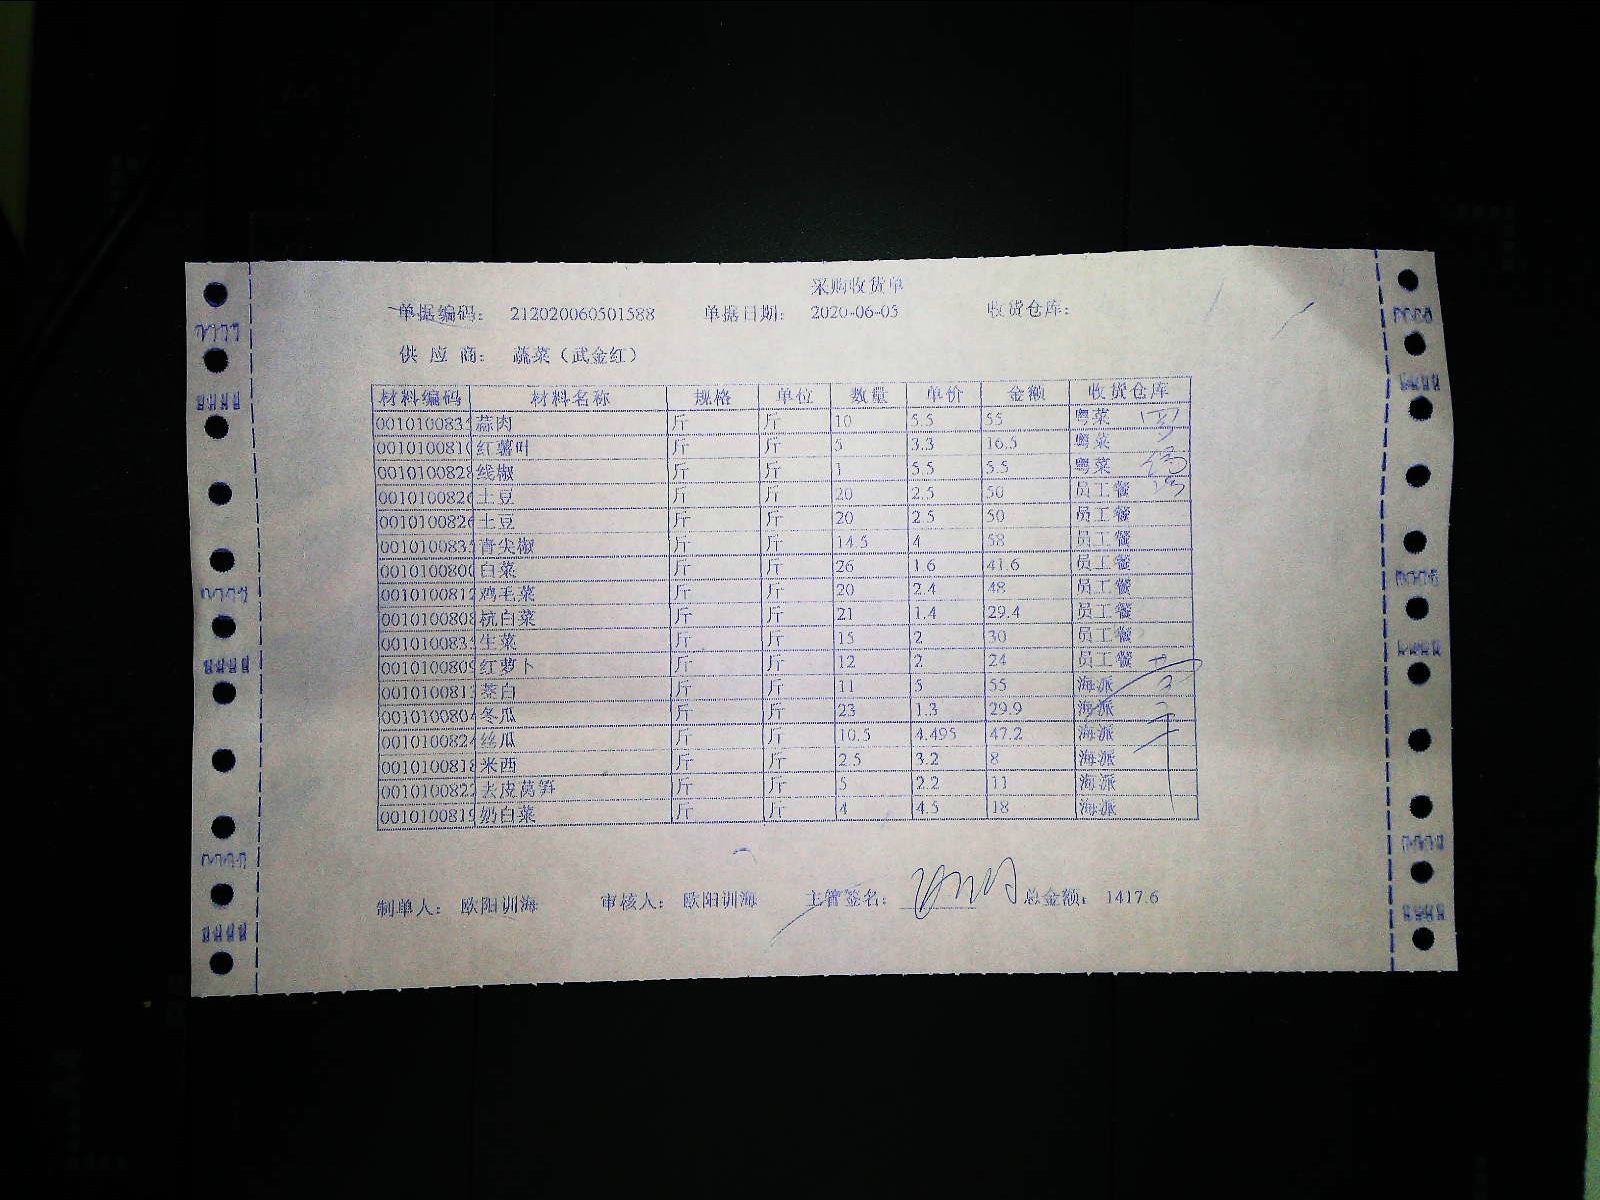 采购收货单
单据编码： 212020060501588 单据日期： 2020-06-05 收货仓库：
供 应 商： 蔬菜（武金红）
材料编码 材料名称 规格 单位 数量 单价 金额 收货仓库
001010083 蒜肉 斤 斤 10 5.5 55 粤菜
001010081 红薯叶 斤 斤 5 3.3 16.5 粤菜
001010082 线椒 斤 斤 1 5.5 5.5 粤菜
001010082 土豆 斤 斤 20 2.5 50 员工餐
001010082 土豆 斤 斤 20 2.5 50 员工餐
001010083 青尖椒 斤 斤 14.5 4 58 员工餐
001010080 白菜 斤 斤 26 1.6 41.6 员工餐
001010081 鸡毛菜 斤 斤 20 2.4 48 员工餐
001010080 杭白菜 斤 斤 21 1.4 29.4 员工餐
001010083 生菜 斤 斤 15 2 30 员工餐
001010080 红萝卜 斤 斤 12 2 24 员工餐
001010081 茭白 斤 斤 11 5 55 海派
001010080 冬瓜 斤 斤 23 1.3 29.9 海派
001010082 丝瓜 斤 斤 10.5 4.495 47.2 海派
001010081 米西 斤 斤 2.5 3.2 8 海派
001010082 去皮莴笋 斤 斤 5 2.2 11 海派
001010081 奶白菜 斤 斤 4 4.5 18 海派
制单人： 欧阳训海 审核人： 欧阳训海 主管签名： 总金额： 1417.6